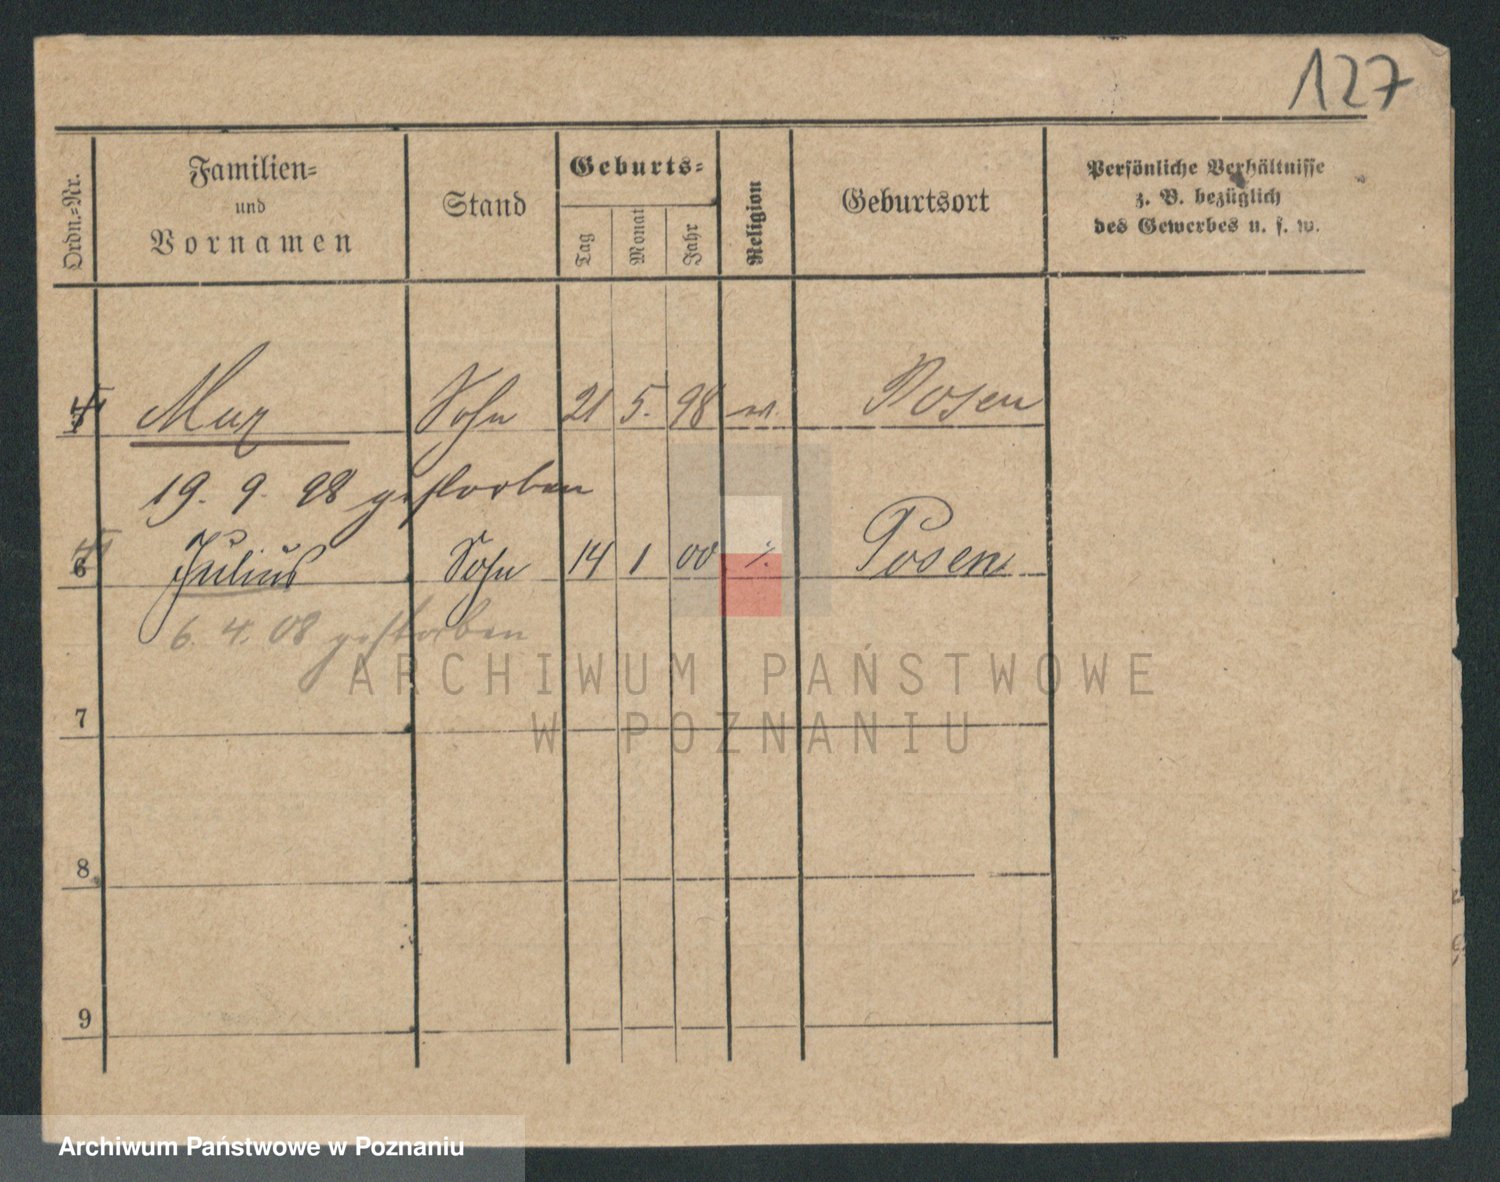 127
Ordn.-Nr.
Familien-
und
Vornamen
Stand
Geburts-
Tag
Monat
Jahr
Religion
Geburtsort
Persönliche Verhältnisse
z. B. bezüglich
des Gewerbes u. s. w.
5 Max Sohn 21 5. 98 Posen
19. 9. 98 gestorben
6 Julius Sohn 14 1 00 ·/. Posen
6. 4. 08 gestorben
ARCHIWUM PAŃSTWOWE
W POZNANIU
7
8
9
Archiwum Państwowe w Poznaniu